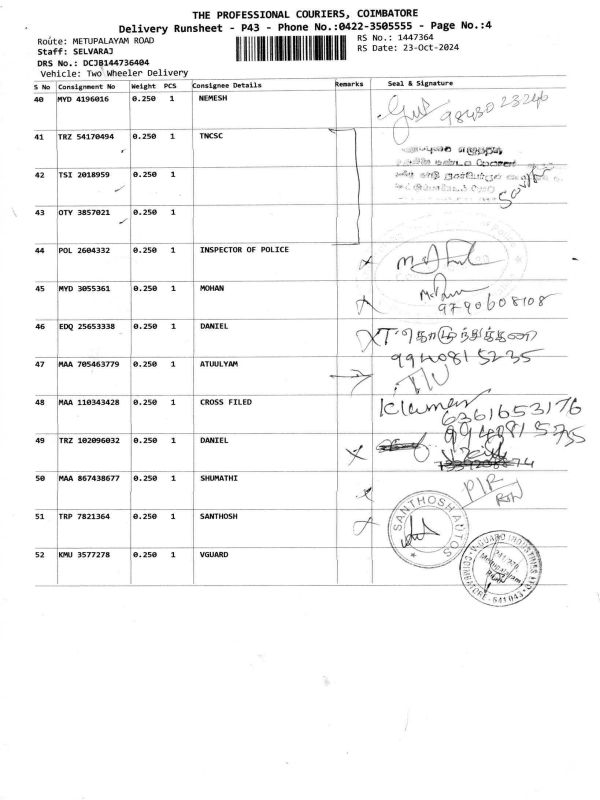 THE PROFESSIONAL COURIERS, COIMBATORE
Delivery Runsheet - P43 - Phone No.:0422-3505555 - Page No.:4
Route: METUPALAYAM ROAD
RS No.: 1447364
Staff: SELVARAJ
RS Date: 23-Oct-2024
DRS No.: DCJB144736404
Vehicle: Two Wheeler Delivery
S No Consignment No Weight PCS Consignee Details Remarks Seal & Signature
40 MYD 4196016 0.250 1 NEMESH 98430 23246
41 TRZ 54170494 0.250 1 TNCSC
42 TSI 2018959 0.250 1
43 OTY 3857021 0.250 1
44 POL 2604332 0.250 1 INSPECTOR OF POLICE
45 MYD 3055361 0.250 1 MOHAN
9790608108
46 EDQ 25653338 0.250 1 DANIEL
9940815235
47 MAA 705463779 0.250 1 ATUULYAM
48 MAA 110343428 0.250 1 CROSS FILED
6361653176
49 TRZ 102096032 0.250 1 DANIEL
50 MAA 867438677 0.250 1 SHUMATHI
51 TRP 7821364 0.250 1 SANTHOSH
SANTHOSH AUTOS
52 KMU 3577278 0.250 1 VGUARD